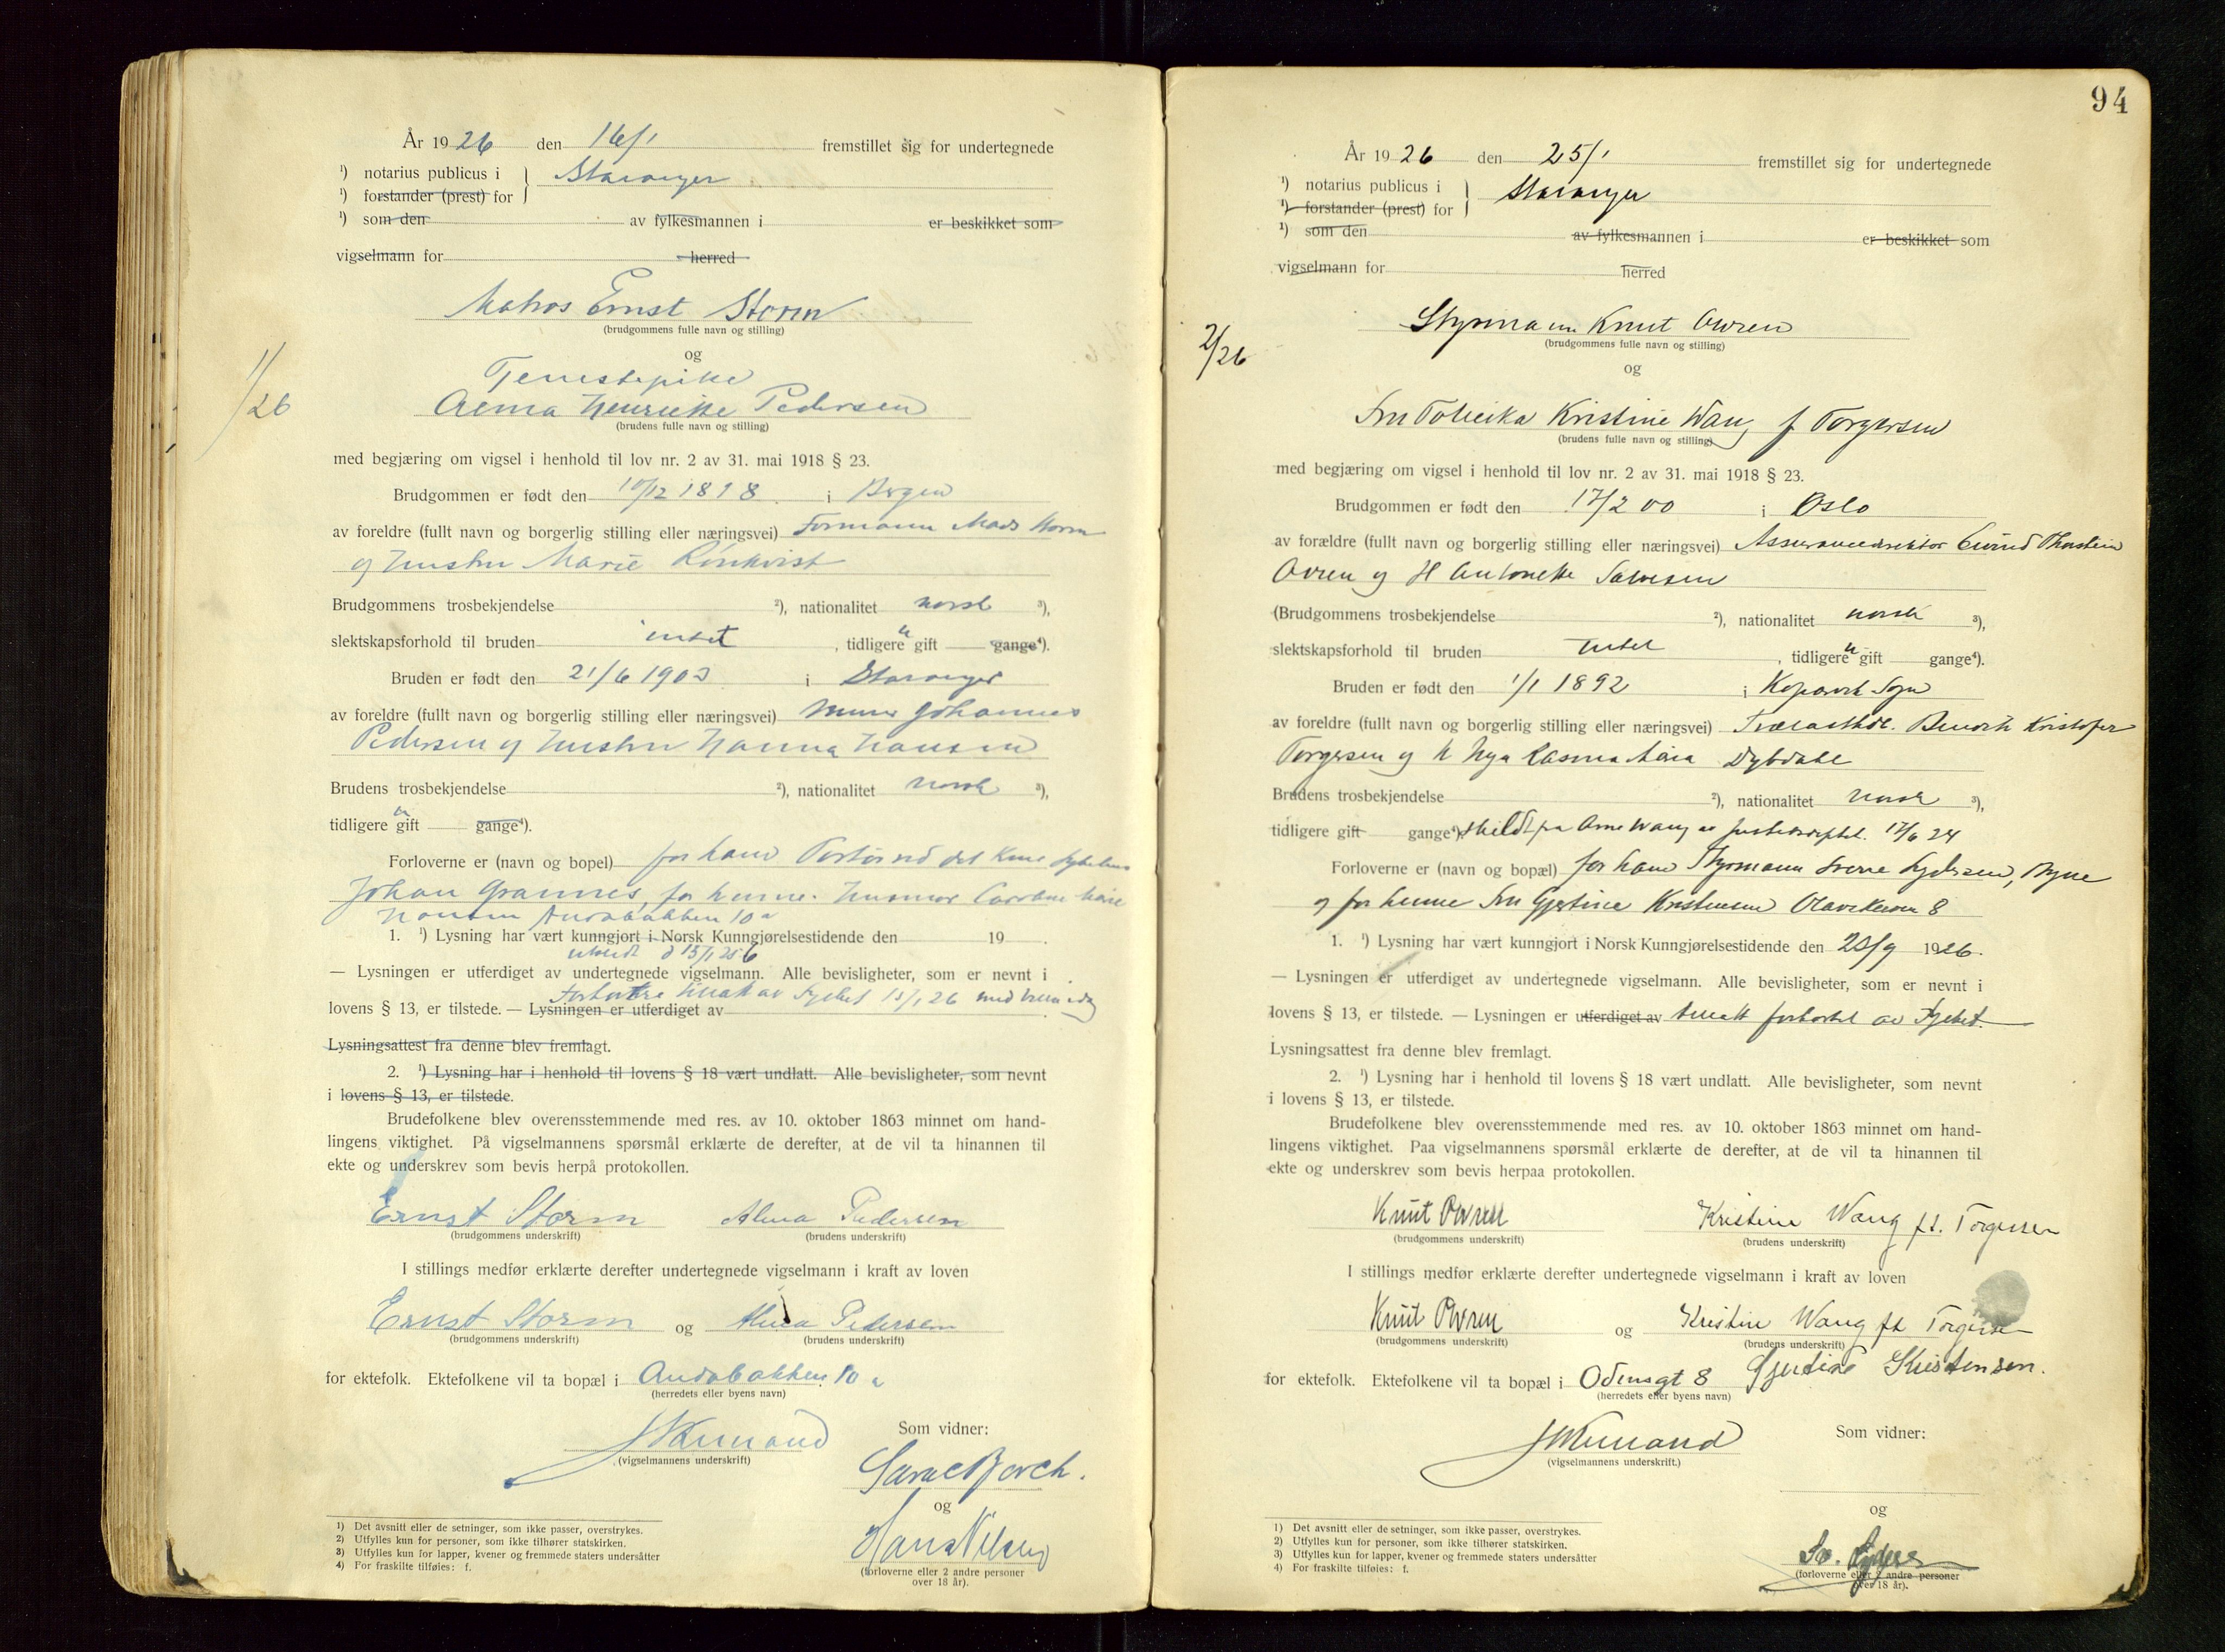 År 1926 den 16/1 fremstillet sig for undertegnede
¹) notarius publicus i } Stavanger
¹) forstander (prest) for
¹) som den av fylkesmannen i er beskikket som
vigselmann for herred
Matros Ernst Storm
(brudgommens fulle navn og stilling)
og
1/26
Tjenestepike
Alma Henriette Pedersen
(brudens fulle navn og stilling)
med begjæring om vigsel i henhold til lov nr. 2 av 31. mai 1918 § 23.
Brudgommen er født den 10/12 1898 i Bergen
av foreldre (fullt navn og borgerlig stilling eller næringsvei) Formann Mads Storm
og hustru Marie Rönkvist
Brudgommens trosbekjendelse ²), nationalitet norsk ³),
slektskapsforhold til bruden intet, tidligere u gift gange⁴).
Bruden er født den 21/6 1903 i Stavanger
av foreldre (fullt navn og borgerlig stilling eller næringsvei) Murer Johannes
Pedersen og hustru Hanna Hansen
Brudens trosbekjendelse ²), nationalitet norsk ³),
tidligere u gift gange⁴).
Forloverne er (navn og bopel) for ham
Johan Grannes, for henne:
Hansen Andabakken 10a
1. ¹) Lysning har vært kunngjort i Norsk Kunngjørelsestidende den 19
utstedt d 15/1 26
— Lysningen er utferdiget av undertegnede vigselmann. Alle bevisligheter, som er nevnt i
av 15/1 26 med
lovens § 13, er tilstede. — Lysningen er utferdiget av
Lysningsattest fra denne blev fremlagt.
2. ¹) Lysning har i henhold til lovens § 18 vært undlatt. Alle bevisligheter, som nevnt
i lovens § 13, er tilstede.
Brudefolkene blev overensstemmende med res. av 10. oktober 1863 minnet om hand-
lingens viktighet. På vigselmannens spørsmål erklærte de derefter, at de vil ta hinannen til
ekte og underskrev som bevis herpå protokollen.
Ernst Storm Alma Pedersen
(brudgommens underskrift) (brudens underskrift)
I stillings medfør erklærte derefter undertegnede vigselmann i kraft av loven
Ernst Storm og Alma Pedersen
(brudgommens underskrift) (brudens underskrift)
for ektefolk. Ektefolkene vil ta bopæl i Andabakken 10a
(herredets eller byens navn)
Som vidner:
(vigselmannens underskrift)
Borch.
og
Hans Nilsen
(forloverne eller 2 andre personer
over 18 år).
1) Det avsnitt eller de setninger, som ikke passer, overstrykes.
2) Utfylles kun for personer, som ikke tilhører statskirken.
3) Utfylles kun for lapper, kvener og fremmede staters undersåtter
4) For fraskilte tilføies: f.
94
År 1926 den 25/1 fremstillet sig for undertegnede
¹) notarius publicus i } Stavanger
¹) forstander (prest) for
¹) som den av fylkesmannen i er beskikket som
vigselmann for herred
Styrmann Knut Owren
(brudgommens fulle navn og stilling)
2/26
og
Fru Kristine Wang f Torgersen
(brudens fulle navn og stilling)
med begjæring om vigsel i henhold til lov nr. 2 av 31. mai 1918 § 23.
Brudgommen er født den 17/2 00 i Oslo
av forældre (fullt navn og borgerlig stilling eller næringsvei) Assurancedirektør Eivind Thorstein
Owren og H Antonette Salvesen
(Brudgommens trosbekjendelse ²), nationalitet norsk ³),
slektskapsforhold til bruden intet, tidligere u gift gange⁴).
Bruden er født den 1/1 1892 i Kopervik Sogn
av foreldre (fullt navn og borgerlig stilling eller næringsvei) Trælasthdl. Kristofer
Torgersen og H Dybdahl
Brudens trosbekjendelse ²), nationalitet norsk ³),
tidligere gift gange⁴) skildt fra Arne Wang 17/6 24
Forloverne er (navn og bopæl) for ham Styrmann Sverre Bryne
og for henne Fru Gjertine Kristensen 8
1. ¹) Lysning har vært kunngjort i Norsk Kunngjørelsestidende den 20/9 1926.
— Lysningen er utferdiget av undertegnede vigselmann. Alle bevisligheter, som er nevnt i
lovens § 13, er tilstede. — Lysningen er utferdiget av tillatt forkortet av Fylket.
Lysningsattest fra denne blev fremlagt.
2. ¹) Lysning har i henhold til lovens § 18 vært undlatt. Alle bevisligheter, som nevnt
i lovens § 13, er tilstede.
Brudefolkene blev overensstemmende med res. av 10. oktober 1863 minnet om hand-
lingens viktighet. Paa vigselmannens spørsmål erklærte de derefter, at de vil ta hinannen til
ekte og underskrev som bevis herpaa protokollen.
Knut Owren Kristine Wang ft. Torgersen
(brudgommens underskrift) (brudens underskrift)
I stillings medfør erklærte derefter undertegnede vigselmann i kraft av loven
Knut Owren og Kristine Wang ft Torgersen
(brudgommens underskrift) (brudens underskrift)
for ektefolk. Ektefolkene vil ta bopæl i Odensgt 8 Gjertine Kristensen.
(herredets eller byens navn)
Som vidner:
(vigselmannens underskrift.)
og
(forloverne eller 2 andre personer
over 18 år).
1) Det avsnitt eller de setninger, som ikke passer, overstrykes.
2) Utfylles kun for personer, som ikke tilhører statskirken.
3) Utfylles kun for lapper, kvener og fremmede staters undersåtter
4) For fraskilte tilføies: f.